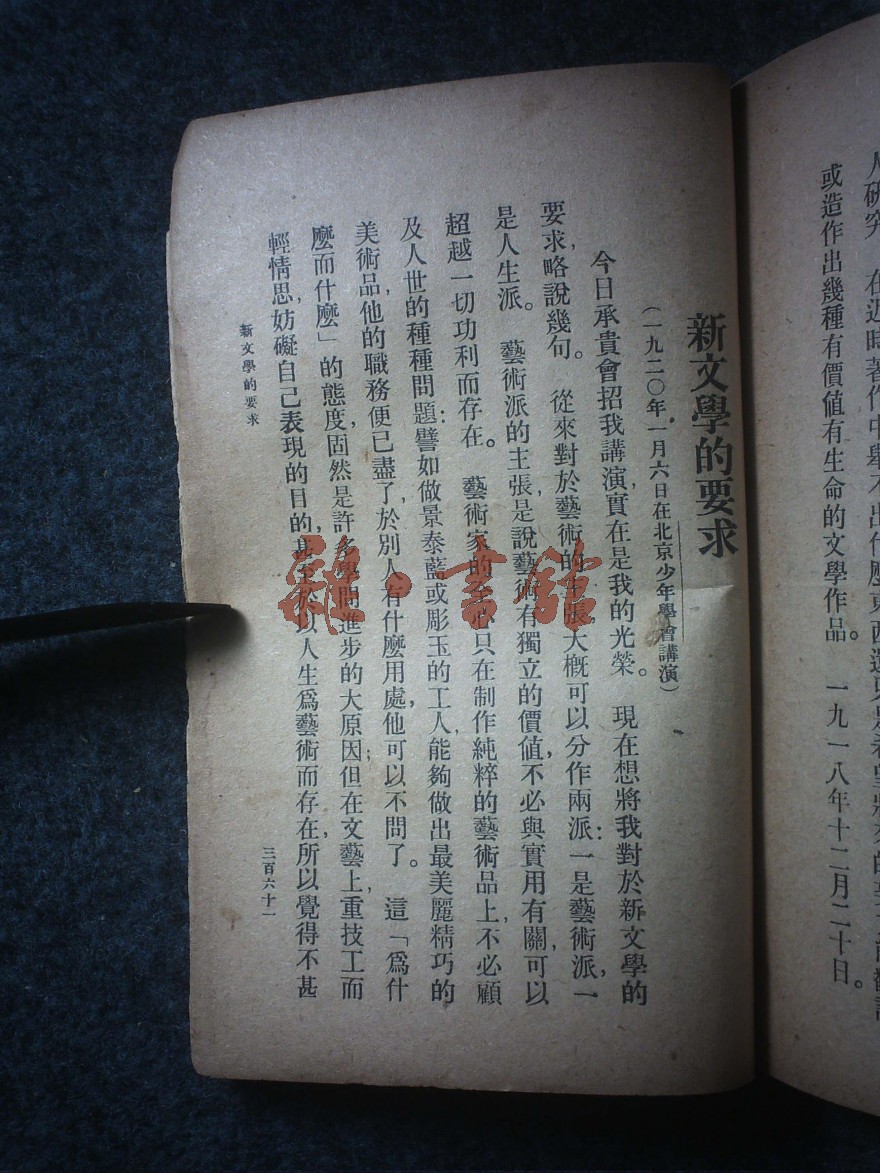 或造作出幾種有價値有生命的文學作品。 一九一八年十二月二十日。
新文學的要求
(一九二〇年一月六日在北京少年學會講演)
今日承貴會招我講演,實在是我的光榮。 現在想將我對於新文學的
要求,略說幾句。 從來對於藝術的主張,大槪可以分作兩派:一是藝術派,一
是人生派。 藝術派的主張,是說藝術有獨立的價値,不必與實用有關,可以
超越一切功利而存在。 藝術家的全心只在制作純粹的藝術品上,不必顧
及人世的種種問題:譬如做景泰藍或彫玉的工人,能夠做出最美麗精巧的
美術品,他的職務便已盡了,於別人有什麼用處,他可以不問了。 這「爲什
麼而什麼」的態度,固然是許多學問進步的大原因;但在文藝上,重技工而
輕情思,妨礙自己表現的目的,甚至於以人生爲藝術而存在,所以覺得不甚
新文學的要求
三百六十一
雜·書館